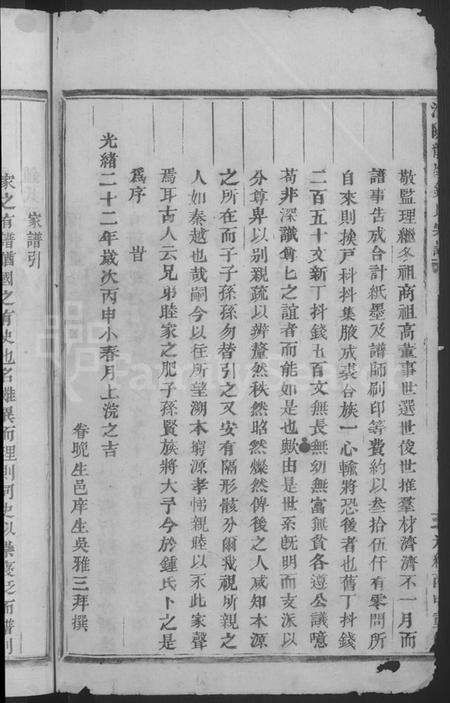 敬監理繼冬祖商祖高董事世選世俊世推羣材濟濟不一月而
譜事告成合計紙墨及譜師刷印等費約以叁拾伍仟有零問所
自來則挨戶科抖集腋成裘合族一心輸將恐後者也舊丁抖錢
二百五十文新丁抖錢五百文無長無幼無富無貧各遵公議噫
苟非深識尊匕之誼者而能如是也歟由是世系旣明而支派以
分尊卑以別親疏以辨釐然秩然昭然燦然俾後之人咸知本源
之所在而子子孫孫勿替引之又安有隔形骸分爾我視所親之
人如秦越也哉嗣今以往所望溯本窮源孝悌親睦以永此家聲
焉耳古人云兄弟睦家之肥子孫賢族將大予今於鍾氏卜之是
爲序 旹
光緒二十二年歲次丙申小春月上浣之吉
眷晚生邑庠生吳雅三拜撰
家譜引
家之有譜猶國之有史也名雖異而理則同史以